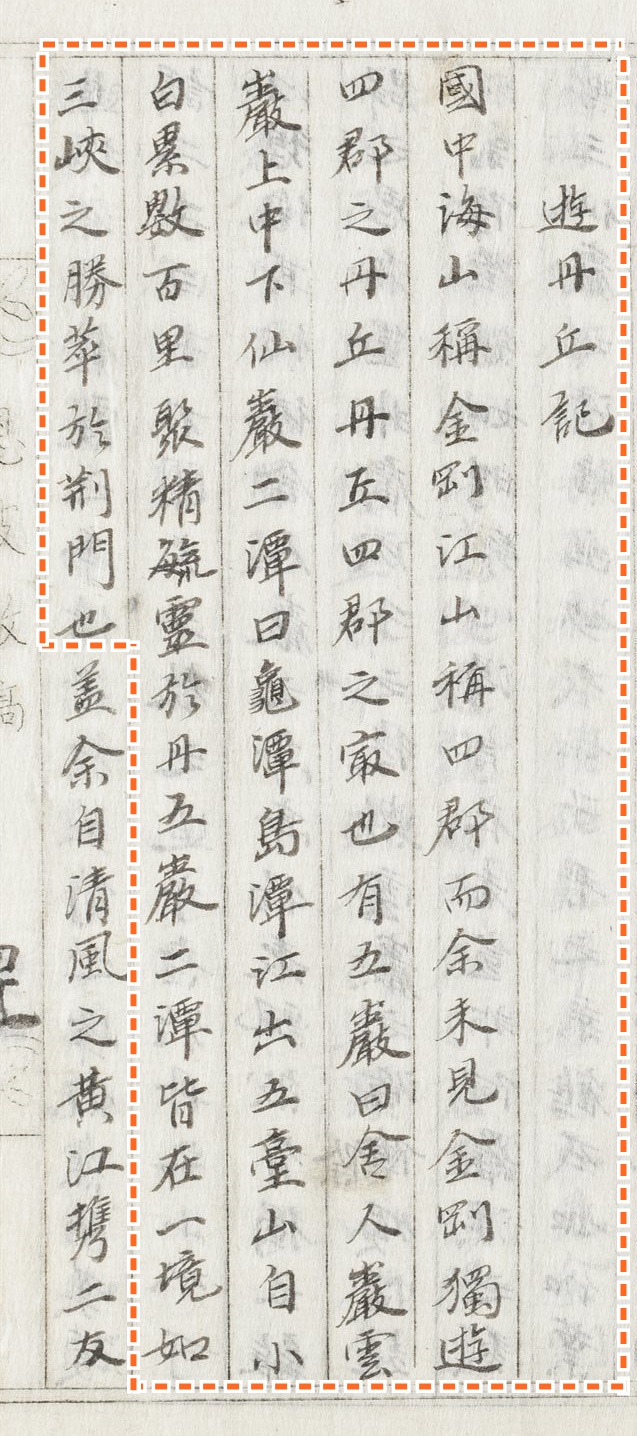 遊丹丘記
國中海山稱金剛江山稱四郡而余未見金剛獨遊
四郡之丹丘丹丘四郡之㝡也有五巖曰舍人巖雲
巖上中下仙巖二潭曰龜潭島潭江出五臺山自小
白累數百里聚精毓靈於丹五巖二潭皆在一境如
三峽之勝萃於荆門也盖余自清風之黄江携二友